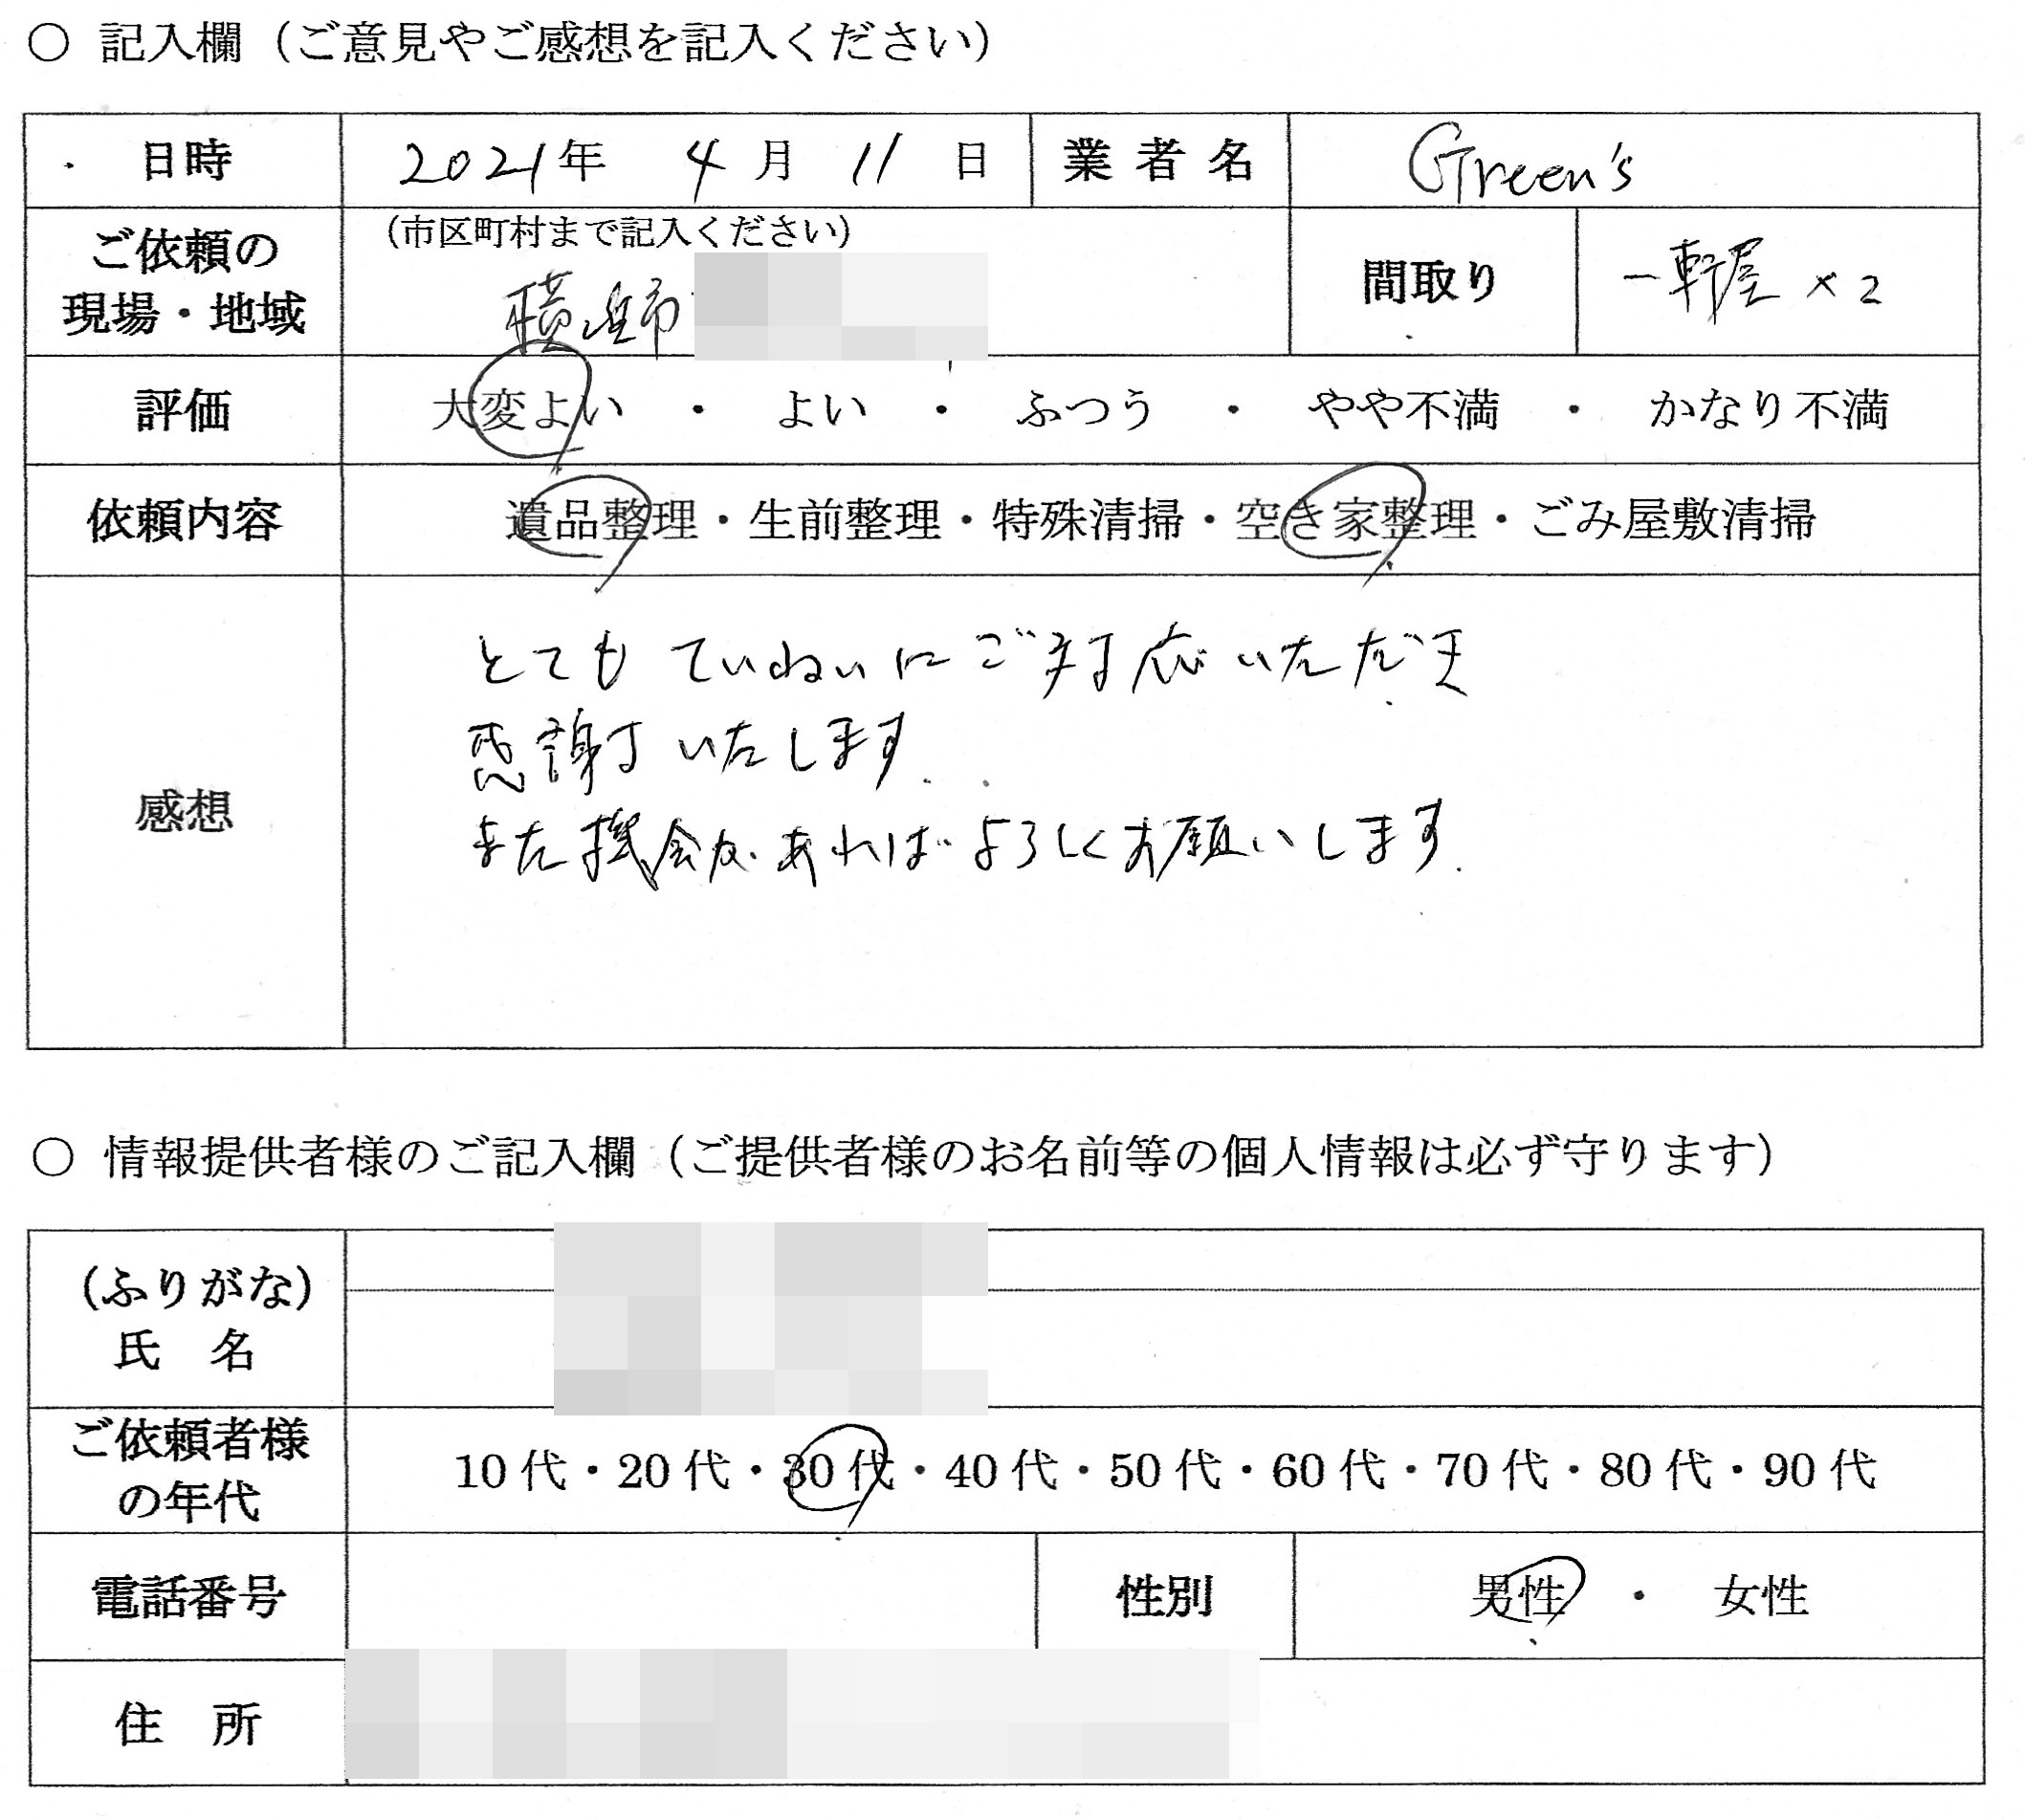 ○ 記入欄（ご意見やご感想を記入ください）
日時 2021年 4月 11日 業者名 Green's
ご依頼の現場・地域 （市区町村まで記入ください） 横浜市 間取り 一軒屋 ×2
評価 大変よい ・ よい ・ ふつう ・ やや不満 ・ かなり不満
依頼内容 遺品整理・生前整理・特殊清掃・空き家整理・ごみ屋敷清掃
感想
とても ていねいに ご対応いただき
感謝いたします.
また機会があればよろしくお願いします.
○ 情報提供者様のご記入欄（ご提供者様のお名前等の個人情報は必ず守ります）
（ふりがな）
氏 名
ご依頼者様の年代 10代・20代・30代・40代・50代・60代・70代・80代・90代
電話番号 性別 男性 ・ 女性
住 所